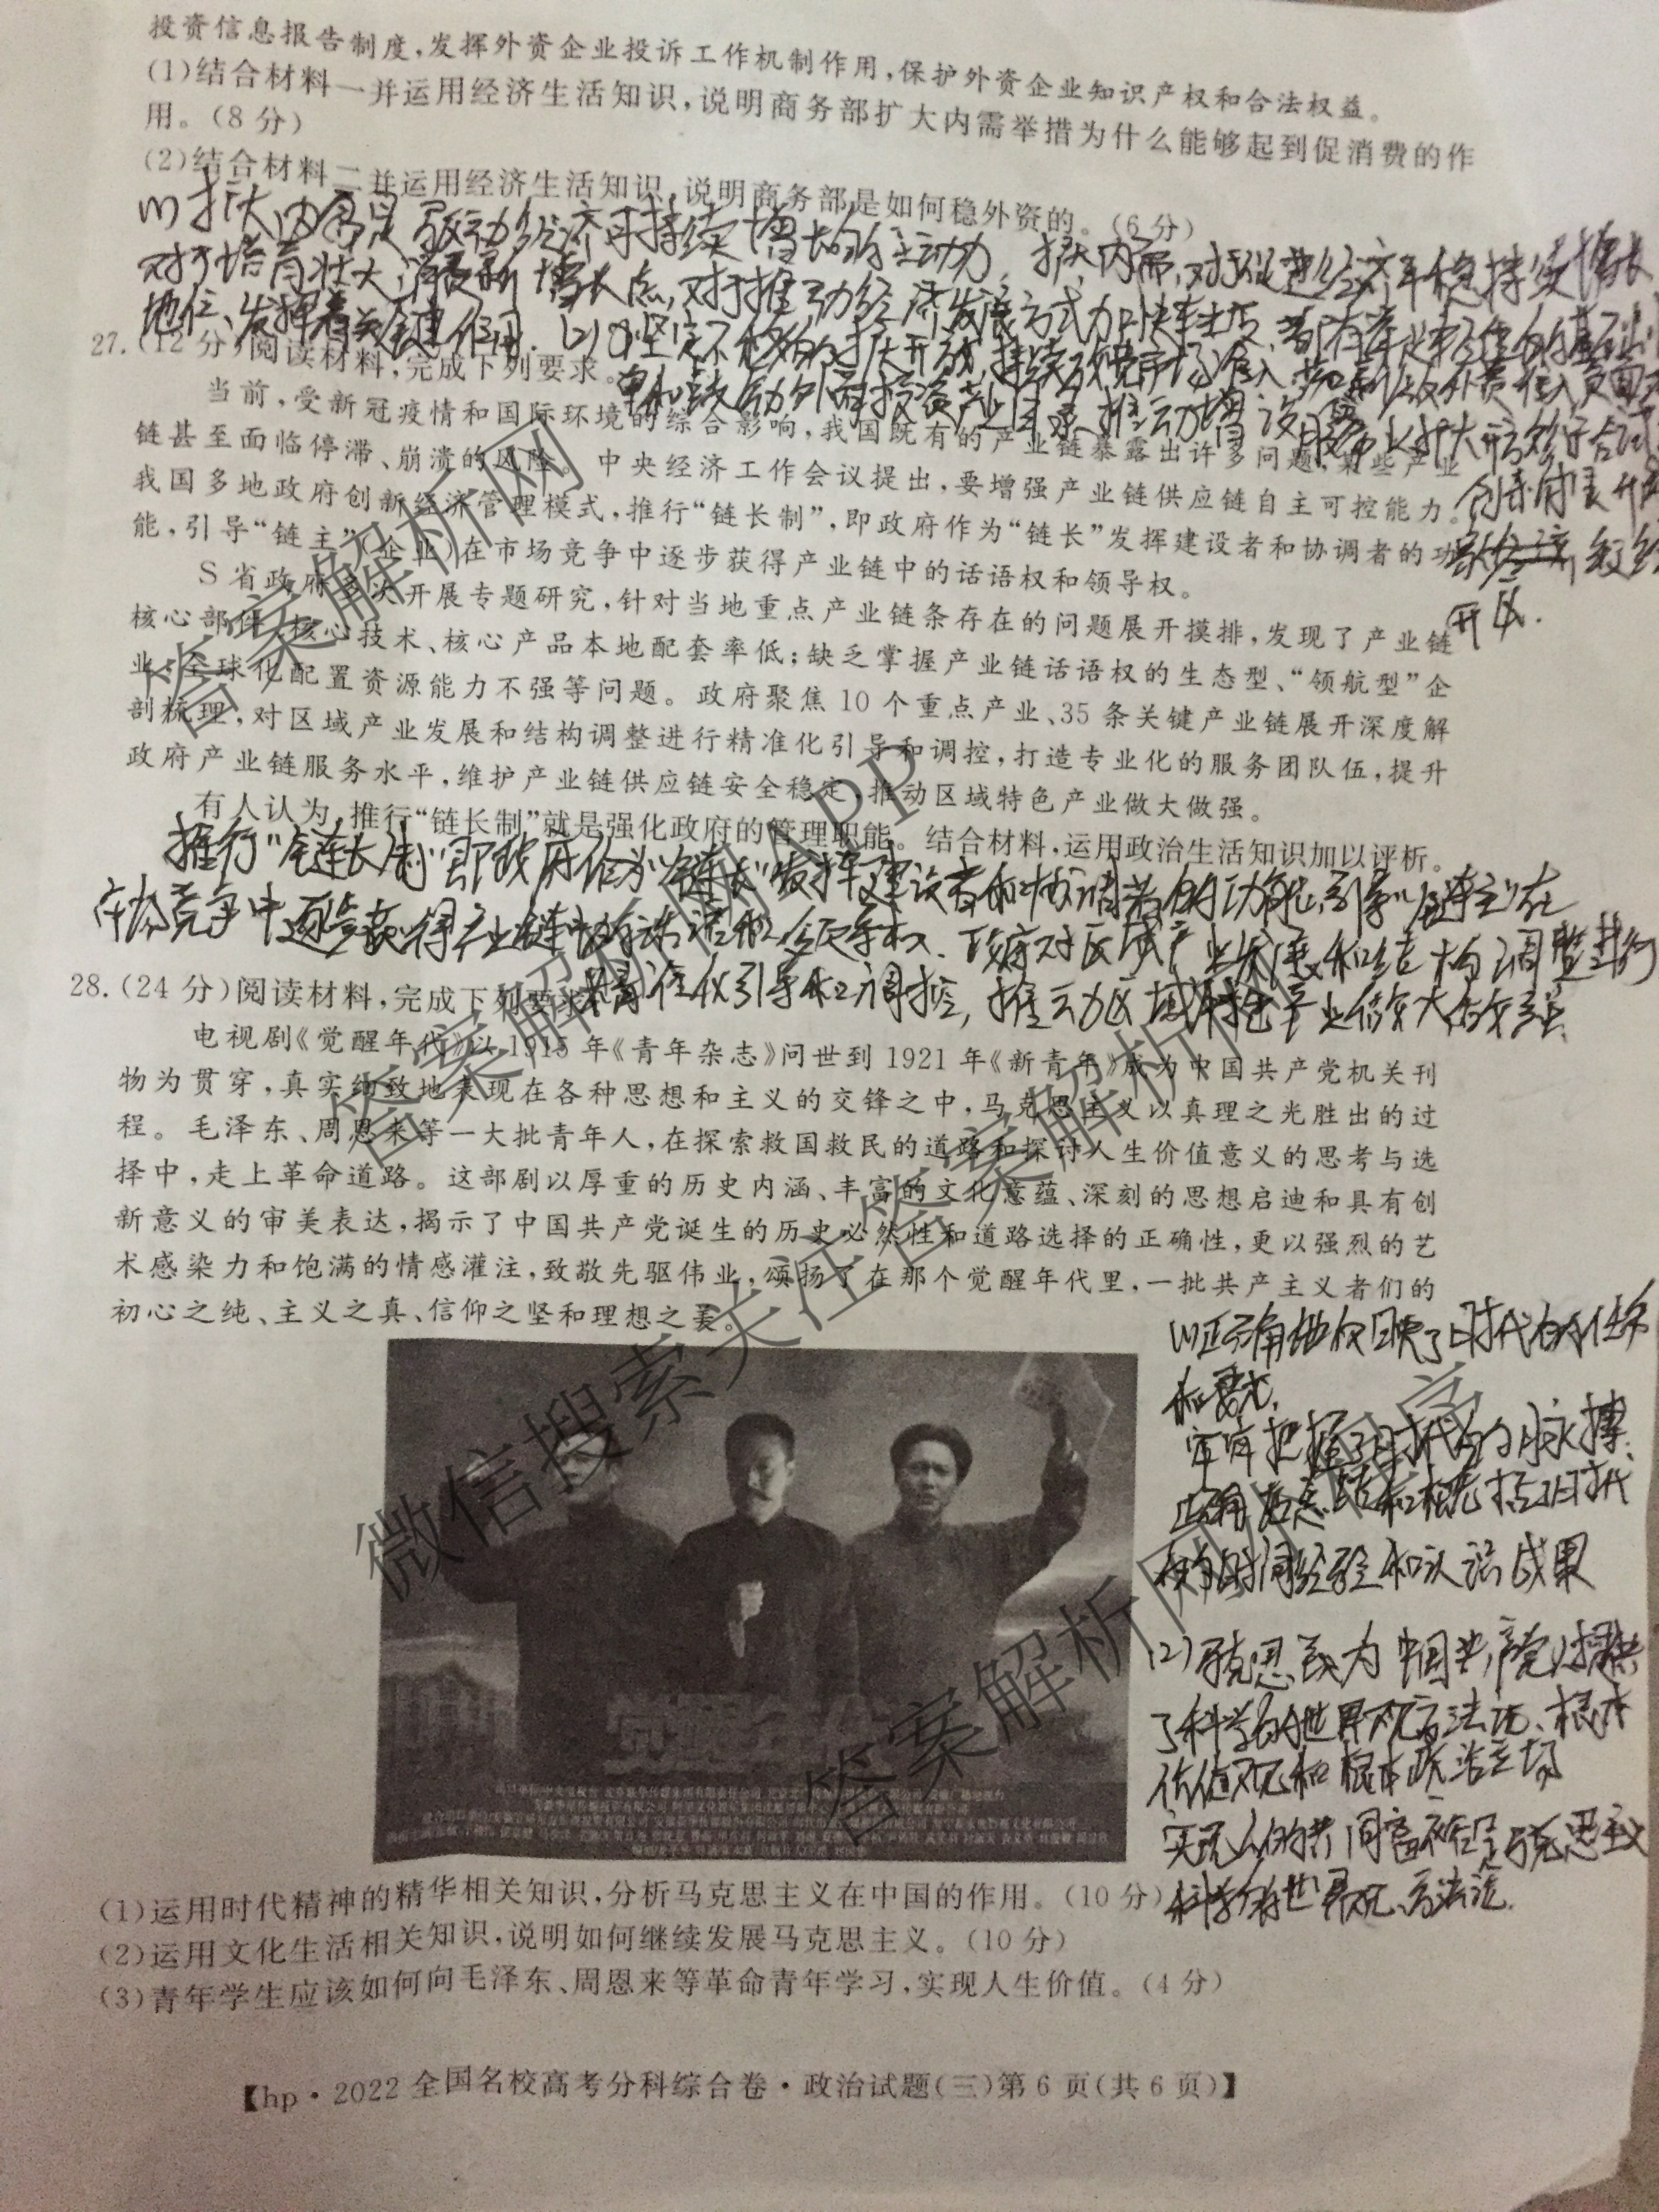 投资信息报告制度,发挥外资企业投诉工作机制作用,保护外资企业知识产权和合法权益。
(1)结合材料一并运用经济生活知识,说明商务部扩大内需举措为什么能够起到促消费的作
用。(8分)
(2)结合材料二并运用经济生活知识,说明商务部是如何稳外资的。(6分)
(1)扩大内需是驱动经济可持续增长的主动力,扩大内需,对于促进经济平稳持续增长
对于培育壮大消费新增长点,对于推动经济发展方式加快转变,都有着
地位、发挥着关键作用.(2)①坚定不移的扩大开放,持续放宽市场准入,
27.(12分)阅读材料,完成下列要求。
单和鼓励外商投资产业目录,推动增设服务业扩大开放综合试
当前,受新冠疫情和国际环境的综合影响,我国既有的产业链暴露出许多问题,某些产业
链甚至面临停滞、崩溃的风险。中央经济工作会议提出,要增强产业链供应链自主可控能力。
我国多地政府创新经济管理模式,推行“链长制”,即政府作为“链长”发挥建设者和协调者的功
能,引导“链主”(企业)在市场竞争中逐步获得产业链中的话语权和领导权。
开区.
S省政府多次开展专题研究,针对当地重点产业链条存在的问题展开摸排,发现了产业链
核心部件、核心技术、核心产品本地配套率低;缺乏掌握产业链话语权的生态型、“领航型”企
业,全球化配置资源能力不强等问题。政府聚焦10个重点产业、35条关键产业链展开深度解
剖梳理,对区域产业发展和结构调整进行精准化引导和调控,打造专业化的服务团队伍,提升
政府产业链服务水平,维护产业链供应链安全稳定,推动区域特色产业做大做强。
有人认为,推行“链长制”就是强化政府的管理职能。结合材料,运用政治生活知识加以评析。
推行“链长制”即政府作为“链长”发挥建设者和协调者的功能,引导“链主”在
市场竞争中逐步获得产业链中的话语权、领导权.政府对区域产业发展和结构调整进行
精准化引导和调控,推动区域特色产业做大做强.
28.(24分)阅读材料,完成下列要求。
电视剧《觉醒年代》以1915年《青年杂志》问世到1921年《新青年》成为中国共产党机关刊
物为贯穿,真实细致地表现在各种思想和主义的交锋之中,马克思主义以真理之光胜出的过
程。毛泽东、周恩来等一大批青年人,在探索救国救民的道路和探讨人生价值意义的思考与选
择中,走上革命道路。这部剧以厚重的历史内涵、丰富的文化意蕴、深刻的思想启迪和具有创
新意义的审美表达,揭示了中国共产党诞生的历史必然性和道路选择的正确性,更以强烈的艺
术感染力和饱满的情感灌注,致敬先驱伟业,颂扬了在那个觉醒年代里,一批共产主义者们的
初心之纯、主义之真、信仰之坚和理想之美。
(1)正确地反映了时代的任务
和要求.
牢牢把握了时代的脉搏.
正确总结和概括了时代
的时间经验和认识成果
(2)马克思主义为中国共产党人提供
了科学的世界观方法论、根本
价值观和根本政治立场
实现人的共同富裕是马克思主义
科学的世界观、方法论.
(1)运用时代精神的精华相关知识,分析马克思主义在中国的作用。(10分)
(2)运用文化生活相关知识,说明如何继续发展马克思主义。(10分)
(3)青年学生应该如何向毛泽东、周恩来等革命青年学习,实现人生价值。(4分)
【hp·2022全国名校高考分科综合卷·政治试题(三)第6页(共6页)】
答案解析网
答案解析网APP
微信搜索关注答案解析网
答案解析网